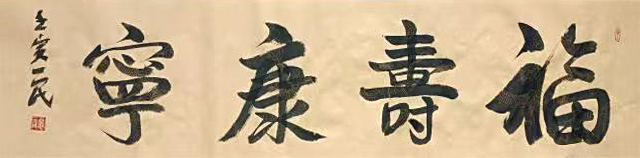 福壽康寧
壬寅一民